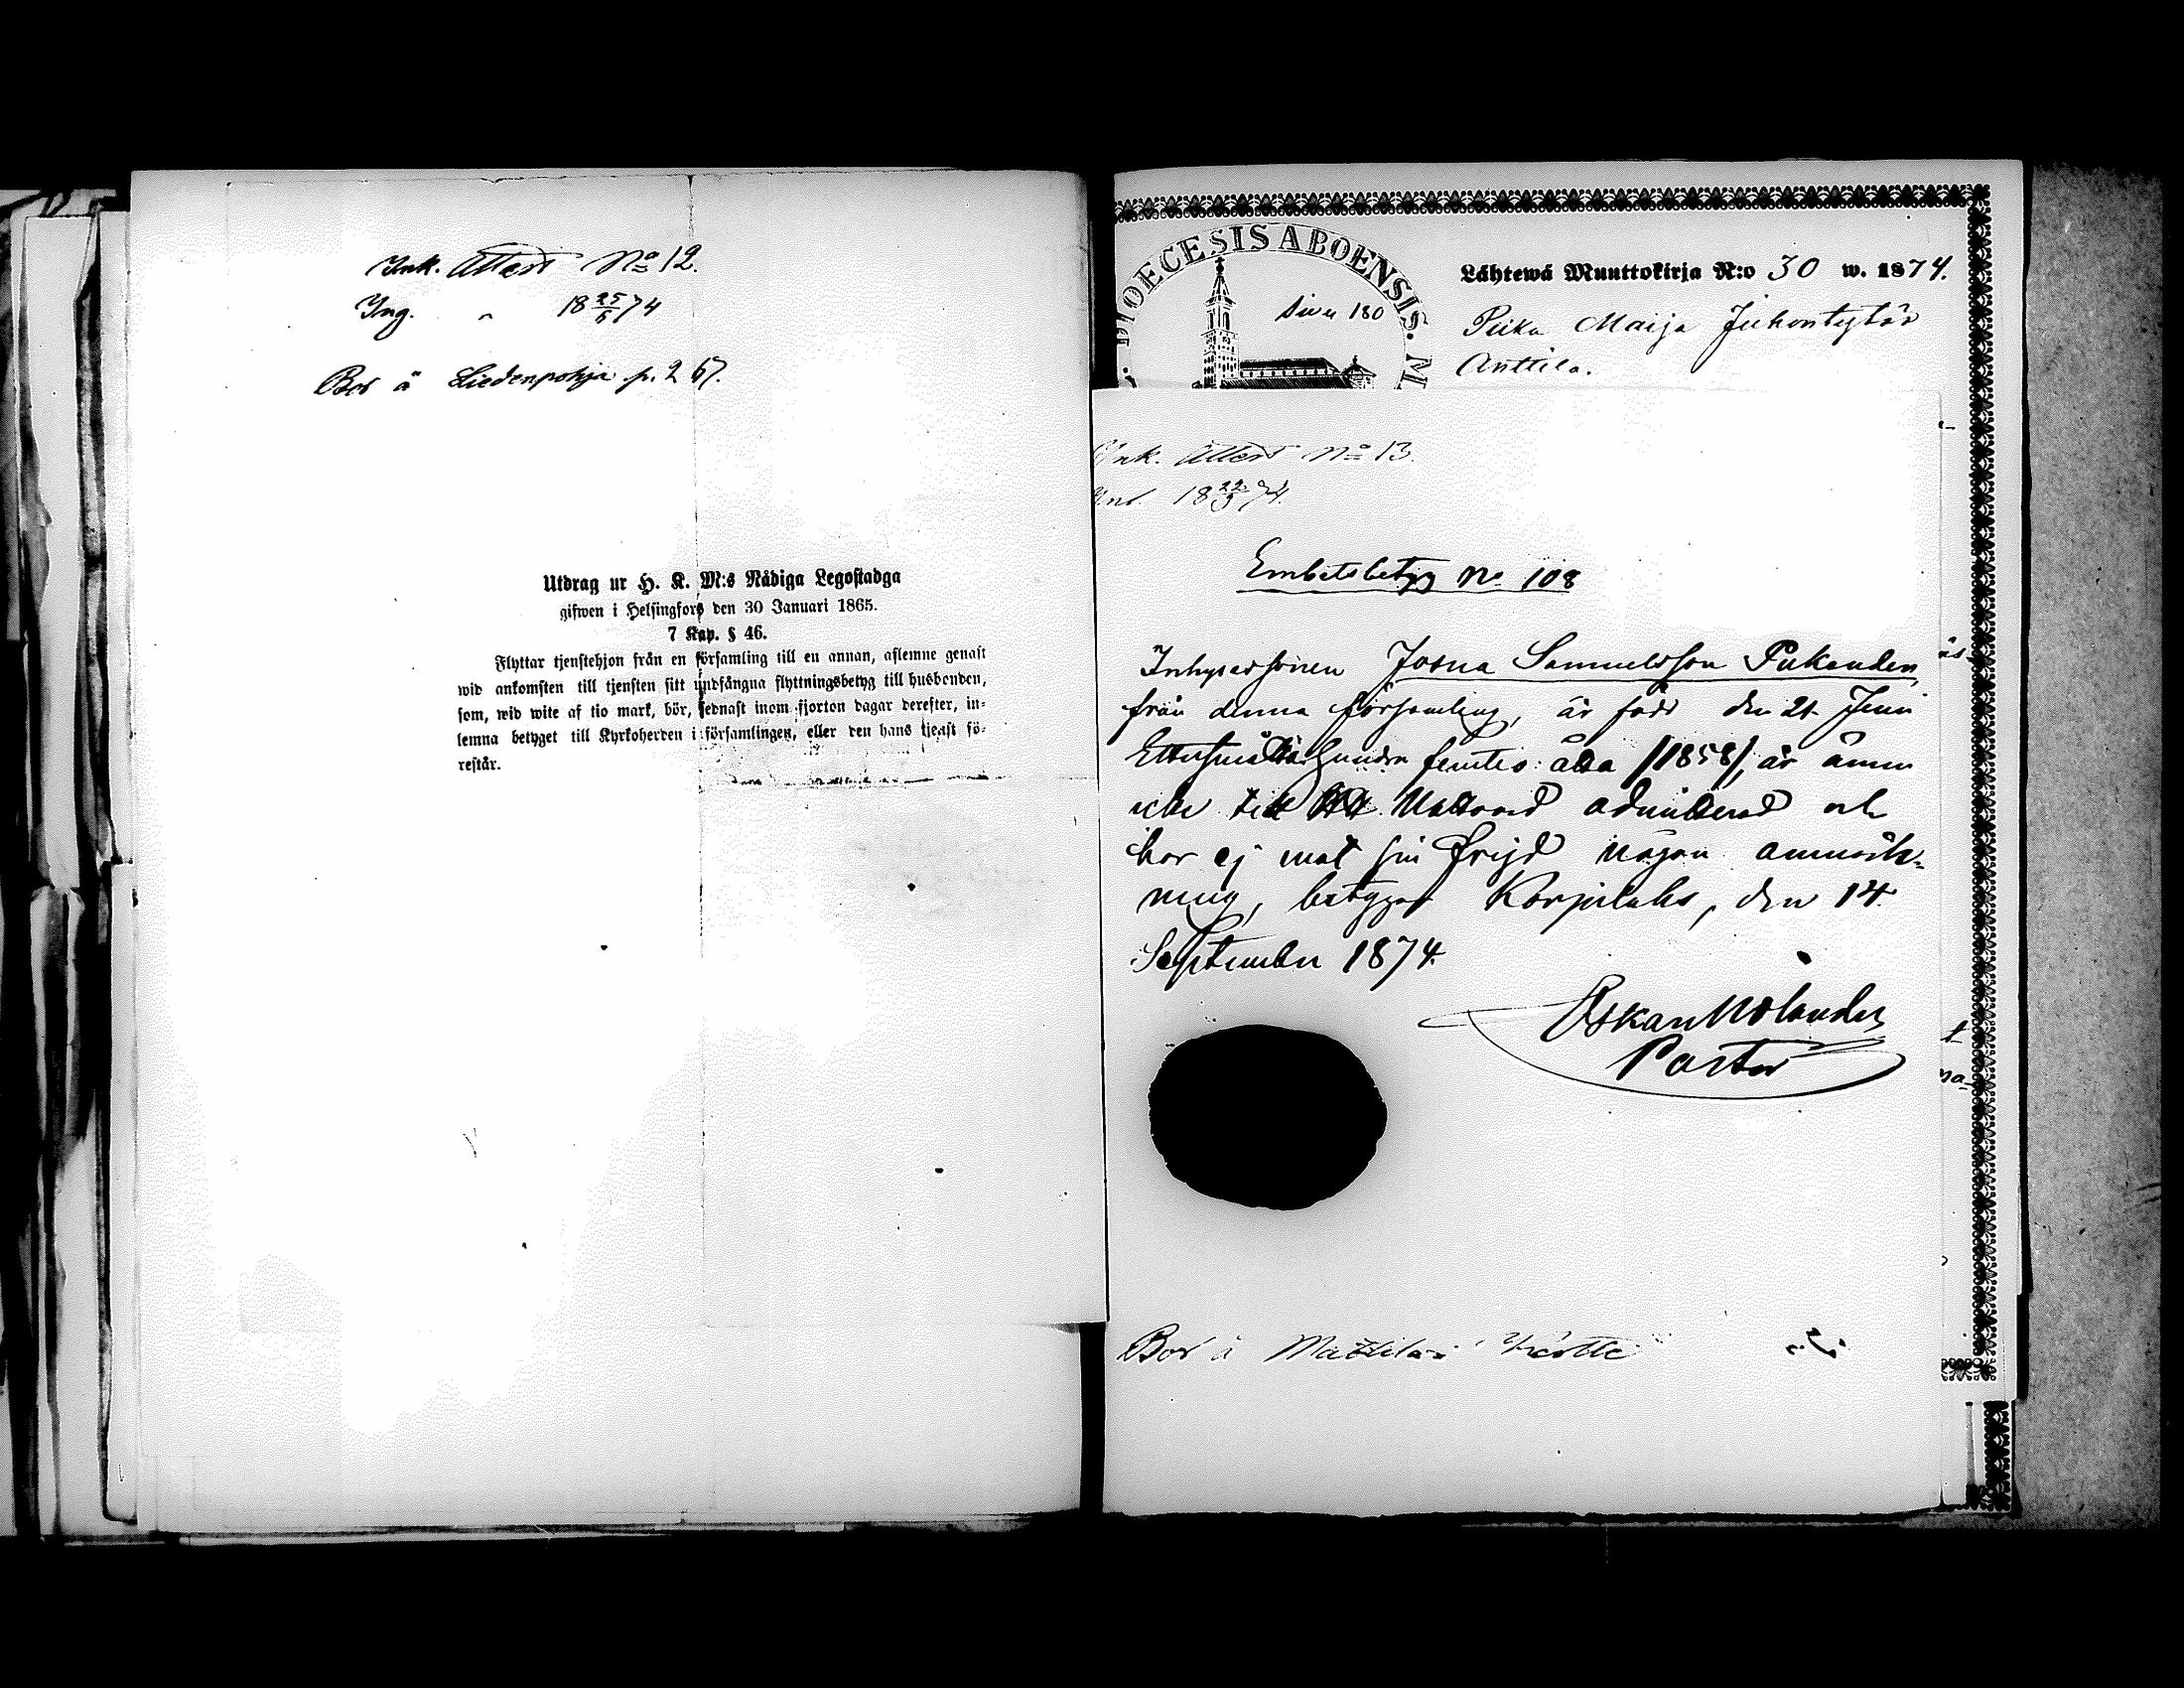 Ink. Attest No 12.
Ing. " 18 25/5 74
Bor å Liedenpohja p. 267.
Utdrag ur H. K. M:s Nådiga Legostadga
gifwen i Helsingfors den 30 Januari 1865.
7 Kap. § 46.
Flyttar tjenstehjon från en församling till en annan, aflemne genast
wid ankomsten till tjensten sitt undfångna flyttningsbetyg till husbonden,
som, wid wite af tio mark, bör, sednast inom fjorton dagar derefter, in-
lemna betyget till Kyrkoherden i församlingen, eller den hans tjenst fö-
restår.
DIOECESIS ABOENSIS. M
Sivu 180
Lähtewä Muuttokirja N:o 30 w. 1874.
Piika Maija Juhontytär
Anttila.
Ink. Attest No 13.
Inl. 18 22/9 74.
Embetsbetyg No 108
Inhysessonen Josua Samuelsson Pukanden,
från denna församling, är född den 21. Juni
Ettusenåttahundra femtio åtta /1858/, är ännu
icke till H. H. Nattvard admitterad och
har ej mot sin frejd någon anmärk-
ning, betygar Korpilaks, den 14.
September 1874.
Oskar Molander
Pastor
Bor å Mattila